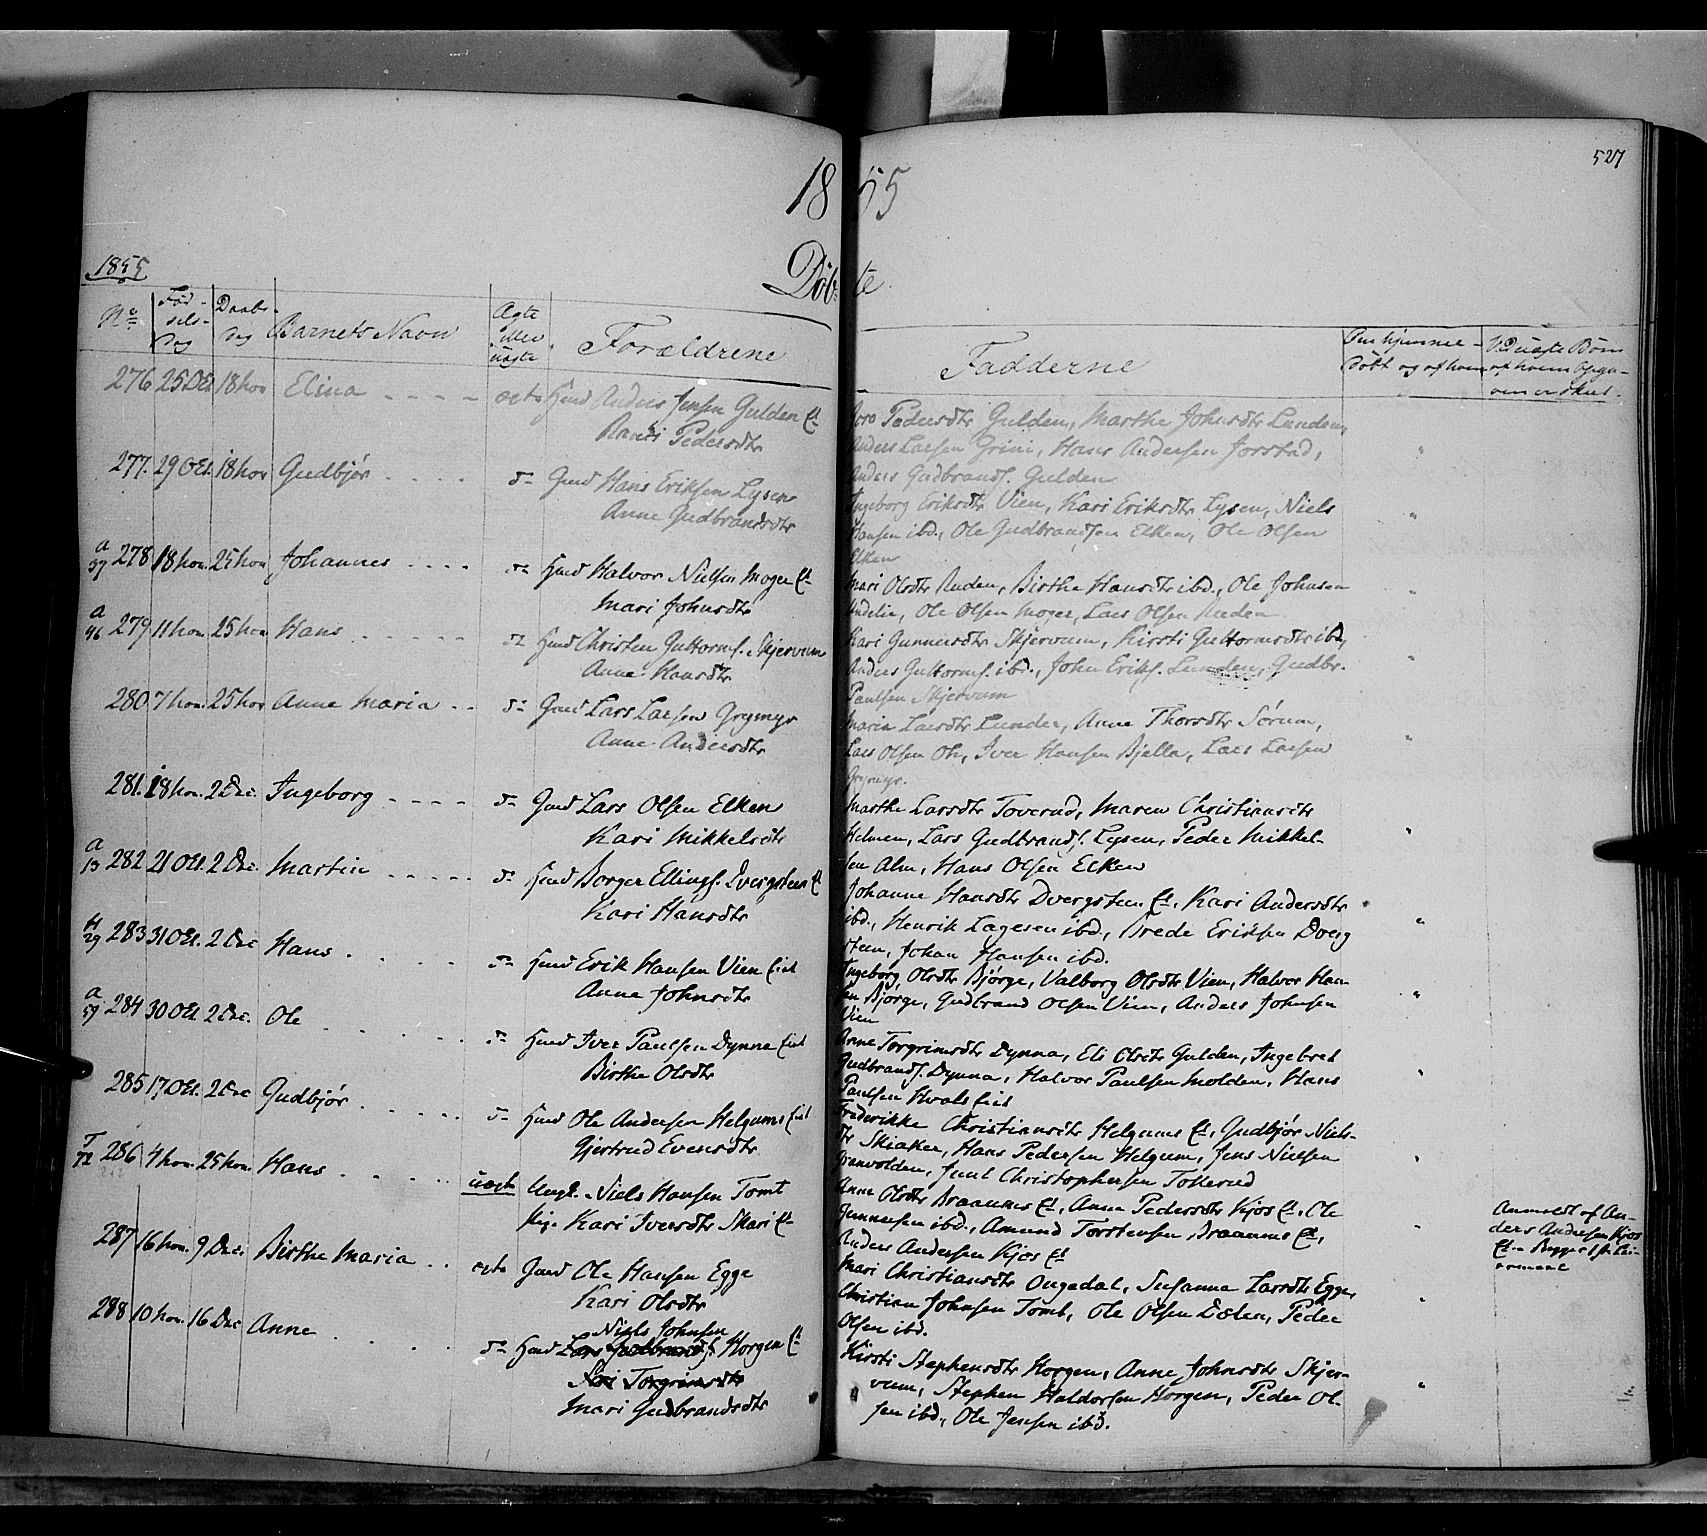 527
1855
1855
Döbte
No
Fød-
sels-
dag
Daabs-
dag
Barnets Navn
Ægte
eller
uægte
Forældrene
Fadderne
Om hjemme-
döbt og af hvem
Ved uægte Børn
af hvem Opgi-
ven er skeet.
276 25 Okt 18 Nov Elina - - - - ægte Huusmd Anders Jensen Gulden Et
Randi Pedersdtr
Goro Pedersdtr Gulden, Marthe Johnsdtr Lunden,
Anders Larsen Grini, Hans Andersen Jorstad,
Anders Gudbrands. Gulden
277. 29 Okt. 18 Nov Gudbjør - - - - do Gmd Hans Eriksen Lysen
Anne Gudbrandsdtr
Ingeborg Eriksdtr Vien, Kari Eriksdtr Lysen, Niels
Hansen ibd., Ole Gudbrandsen Elken, Ole Olsen
Elken
a
37 278 18 Nov. 25 Nov Johannes - - - - do Hmd Halvor Nielsen Moger Et
Mari Johnsdtr
Mari Olsdtr Ruden, Birthe Hansdtr ibd., Ole Johnsen
Undelie, Ole Olsen Moger, Lars Olsen Ruden
a
46 279 11 Nov. 25 Nov Hans - - - - do Hmd Christen Guttorms. Skjervum
Anne Hansdtr
Kari Gunnersdtr Skjervum, Kirsti Guttormsdtr ibd,
Anders Guttorms. ibd., John Eriks. Lunden, Gudbr.
Paulsen Skjervum
280 7 Nov. 25 Nov Anne Maria - - do Gmd Lars Larsen Grymyr
Anne Andersdtr
Maria Larsdtr Lunder, Anne Thorsdtr Sörum,
Lars Olsen , Iver Hansen Bjella, Lars Larsen
Grymyr.
281. 18 Nov. 2 Dec. Ingeborg - - - - do Gmd Lars Olsen Elken
Kari Mikkelsdtr
Marthe Larsdtr Toverud, Maren Christiansdtr
Helmen, Lars Gudbrands. Lysen, Peder Mikkel-
sen Alm, Hans Olsen Elken
a
13 282 21 Okt. 2 Dec. Martin - - - - do Hmd Borger Ellings. Dvergsteen Et
Kari Hansdtr
Johanne Hansdtr Dvergsten Et, Kari Andersdtr
ibd., Henrik Lagesen ibd., Brede Eriksen Dverg
steen, Johan Hansen ibd.
H
29 283 31 Okt. 2 Dec Hans - - - - do Hmd Erik Hansen Vien Eiet
Anne Johnsdtr
Ingeborg Olsdtr Bjørge, Valborg Olsdtr Vien, Halvor Han-
sen Bjørge, Gudbrand Olsen Vien, Anders Johnsen
Vien
a
59 284 30 Okt. 2 Dec. Ole - - - - do Hmd Iver Paulsen Dynna Eiet
Birthe Olsdtr
Anne Torgrimsdtr Dynna, Eli Olsdtr Gulden, Ingebret
Gudbrands. Dynna, Halvor Paulsen Molden, Hans
Paulsen Hvals Eiet
285 17 Okt. 2 Dec Gudbjør - - - - do Hmd Ole Andersen Helgums Eiet
Gjertrud Evensdtr
Frederikke Christiansdtr Helgums Et, Gudbjør Niels-
dtr Skiaker, Hans Pedersen Helgum, Jens Nielsen
Granvolden, Juul Christophersen Tokerud
T
72 286 4 Nov. 25 Nov. Hans - - - - uægte Ungk. Niels Hansen Tomt
Pig. Kari Iversdtr Skari Et
Anne Olsdtr Braannes Et, Anne Pedersdtr Kjos Et, Ole
Gunnersen ibd., Amund Torstensen Braannes Et,
Anders Andersen Kjos Et
Anmeldt af An-
ders Andersen Kjos
Et
287 16 Nov. 9 Dec. Birthe Maria - - ægte Gmd Ole Hansen Egge
Kari Olsdtr
Mari Christiansdtr Ongedal, Susanna Larsdtr Egge,
Christian Johnsen Tomt, Ole Olsen Dælen, Peder
Olsen ibd.
288 10 Nov. 16 Dec Anne - - - - do Hmd Niels Johnsen
Lars Gudbrands. Horgen Et
Kari Torgrimsdtr
Mari Gudbrandsdtr
Kirsti Stephensdtr Horgen, Anne Johnsdtr Skjer-
vum, Stephen Haldorsen Horgen, Peder Ol-
sen ibd., Ole Jensen ibd.